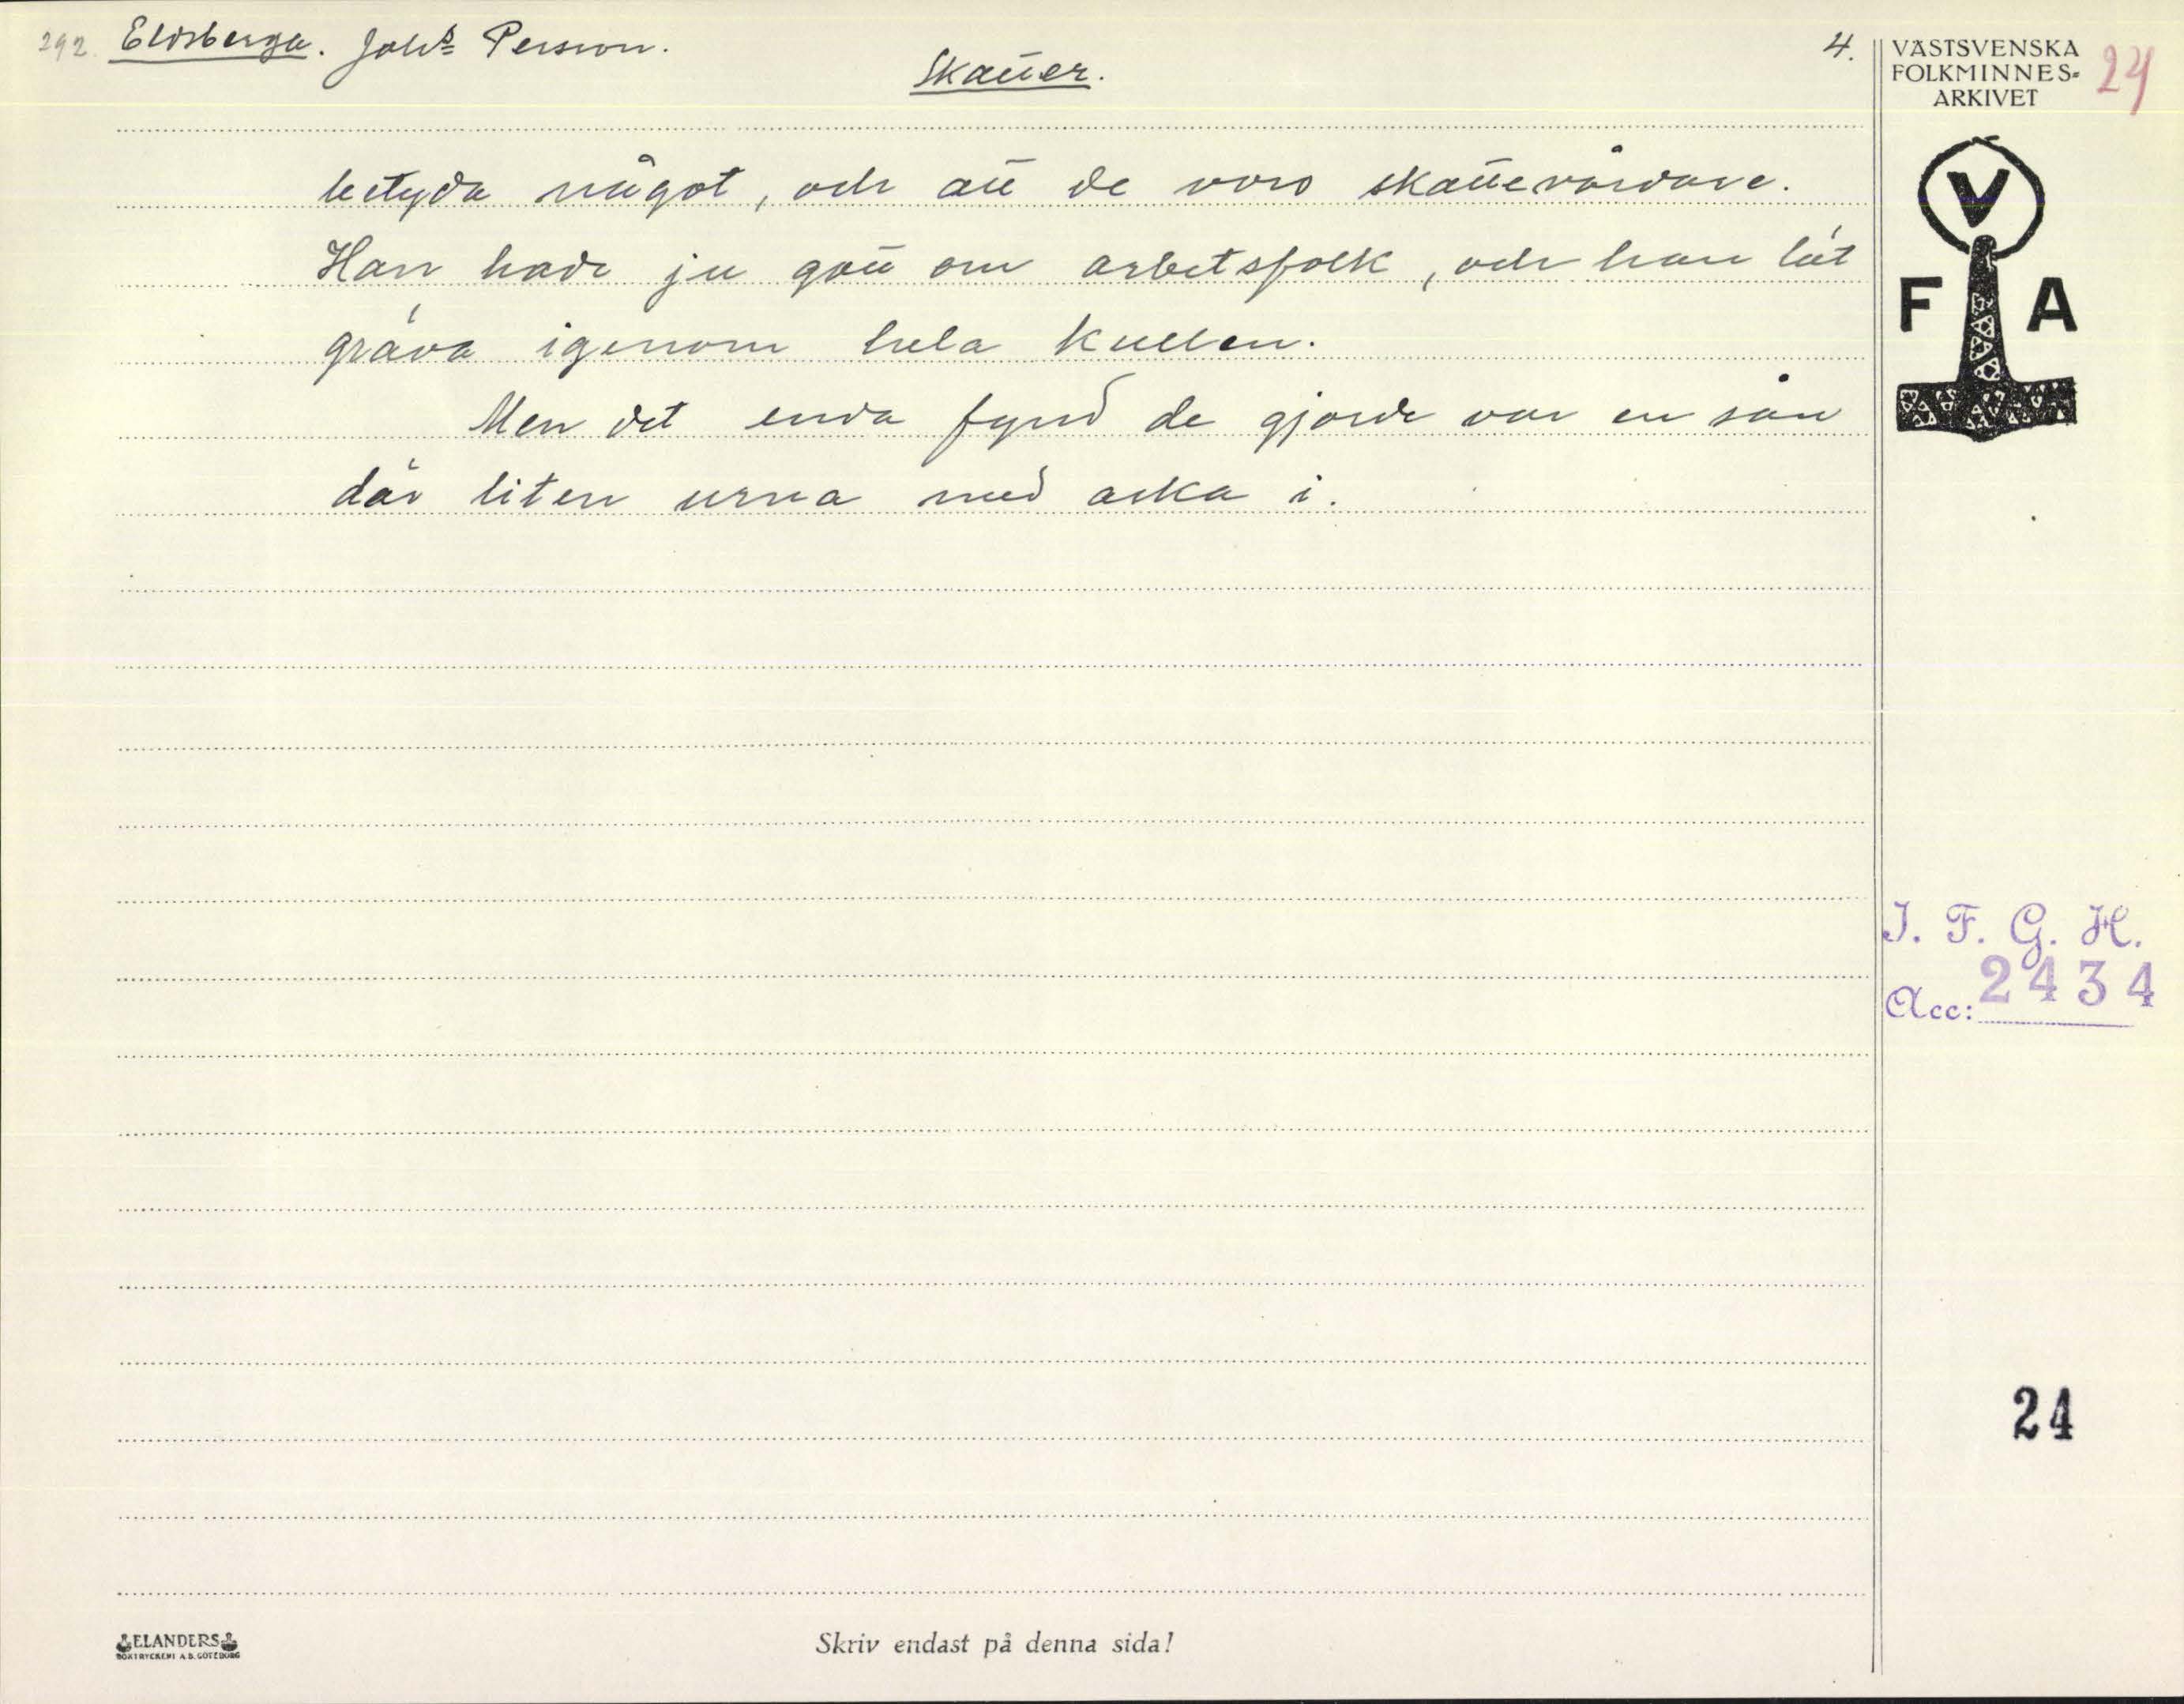 292. Eldsberga. Johs Persson.
Skatter.
4.
VÄSTSVENSKA
FOLKMINNES-
ARKIVET
24
V
F A
betyda något, och att de voro skattevårdare.
Han hade ju gott om arbetsfolk, och han lät
gräva igenom hela kullen.
Men det enda fynd de gjorde var en sån
där liten urna med aska i.
I. F. G. H.
Acc: 2434
24
ELANDERS
BOKTRYCKERI A.B. GÖTEBORG
Skriv endast på denna sida!